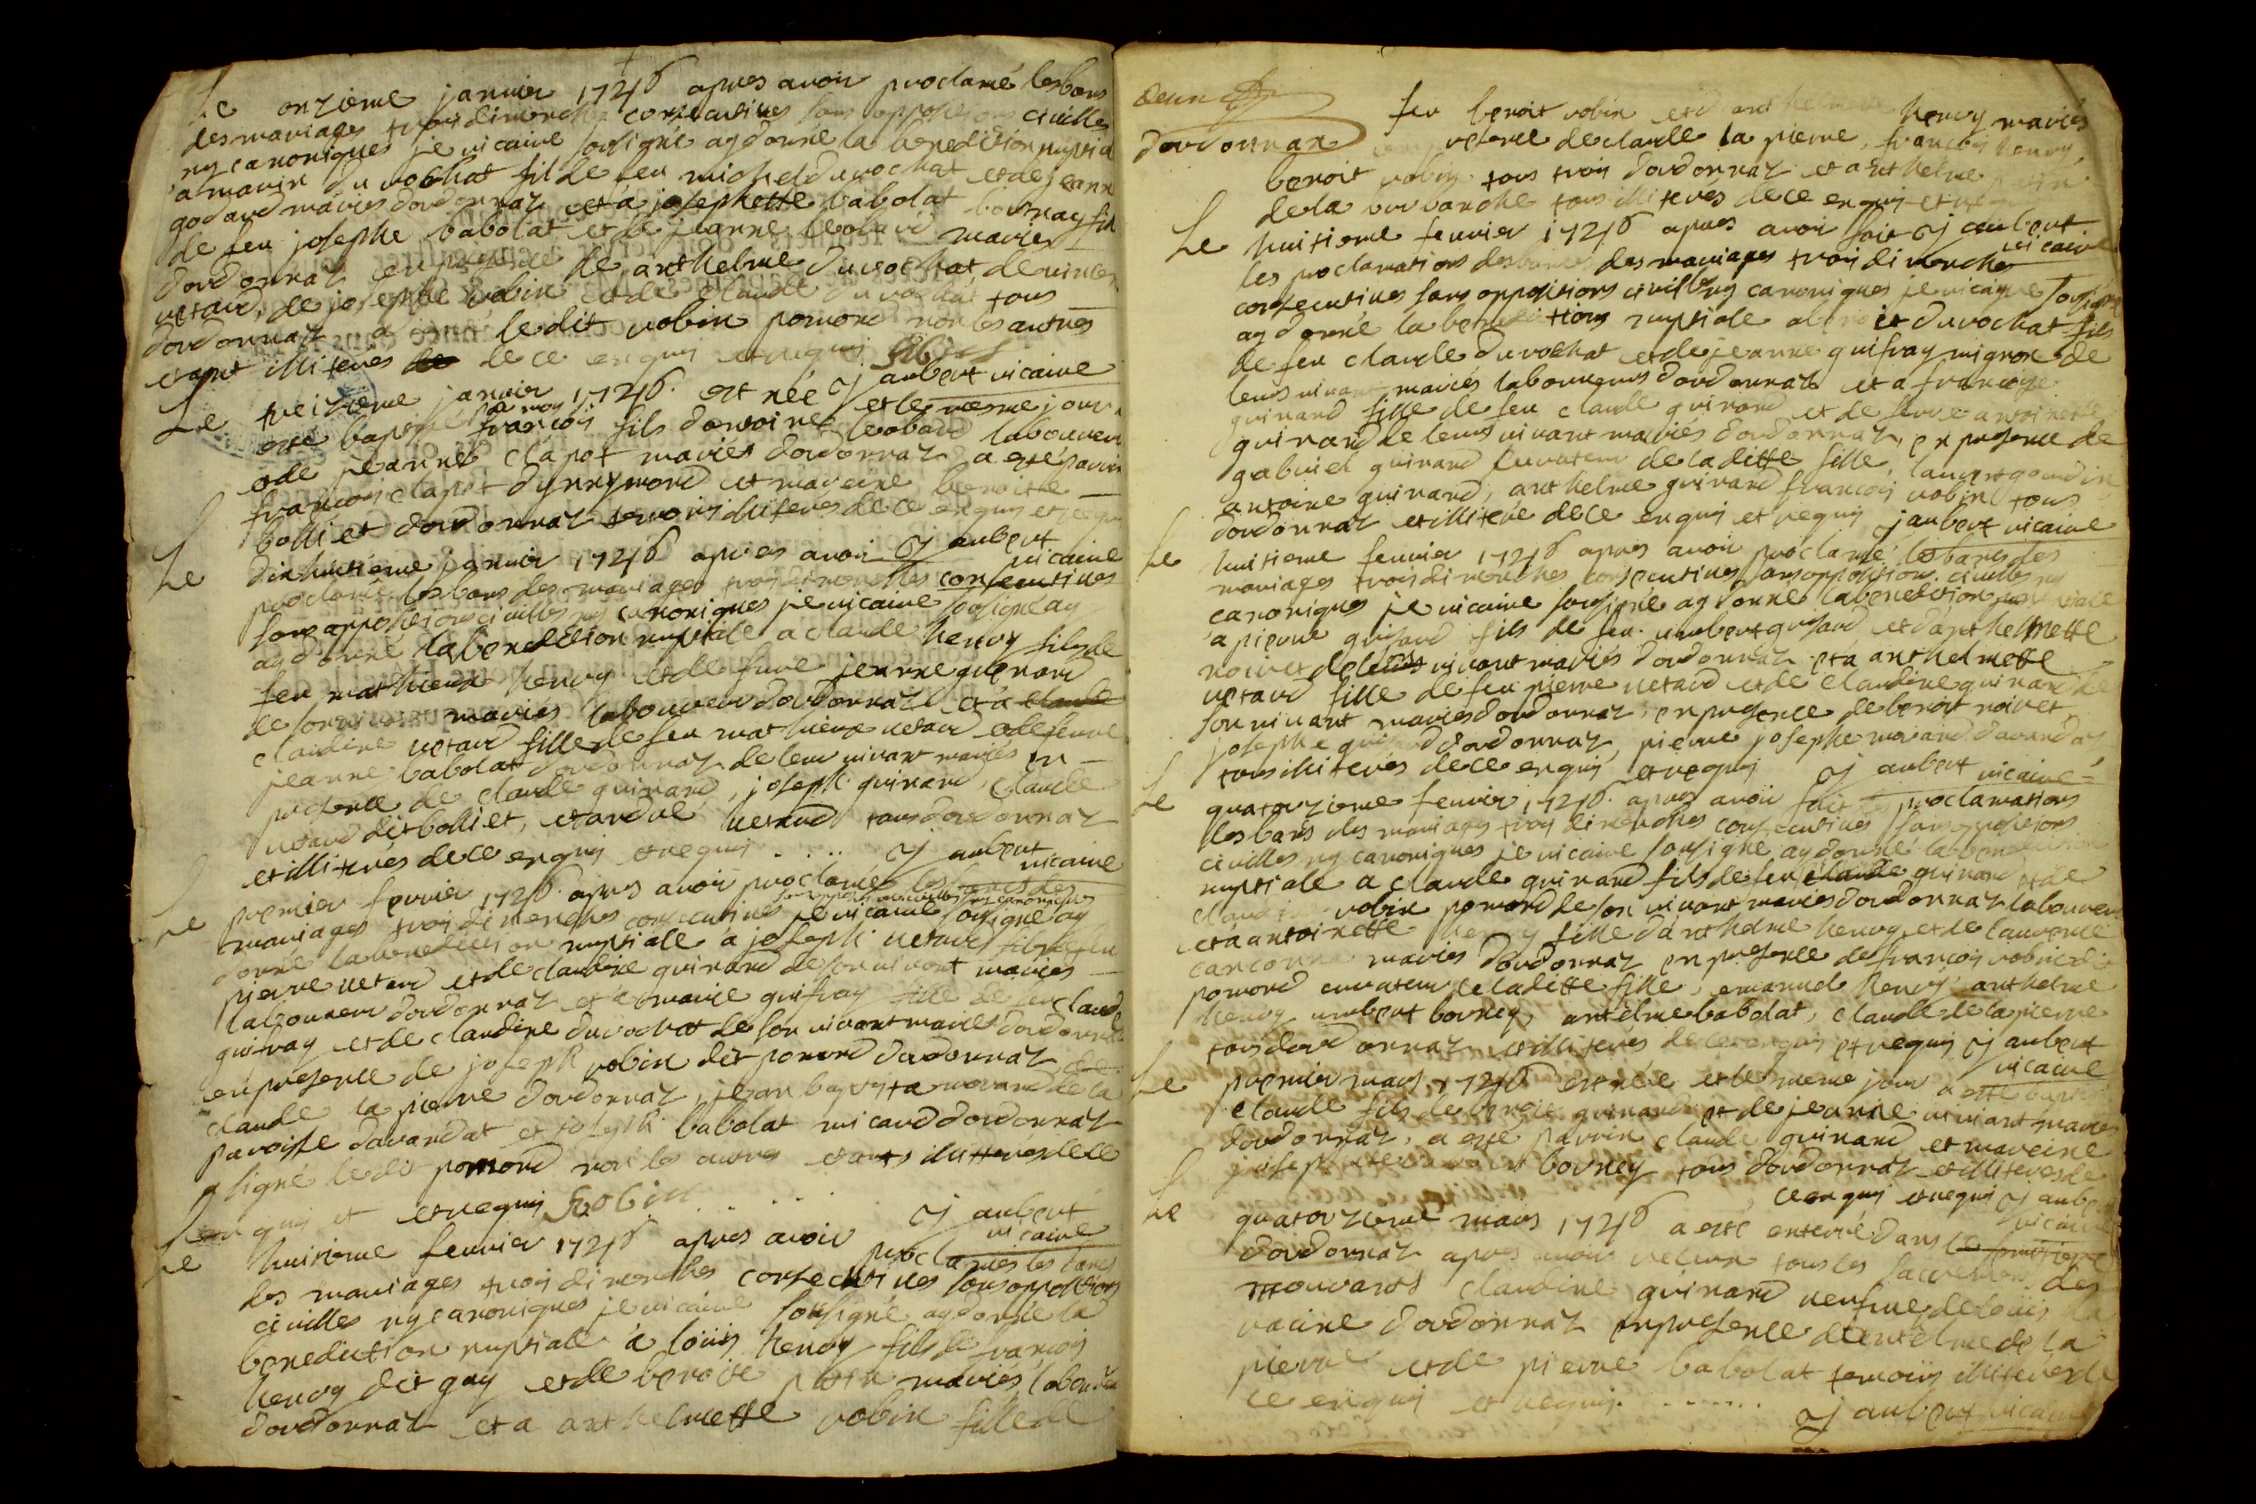 Le onzieme janvier 1746 apres avoir proclamé les bans
des mariages trois dimenches consecutives sans oppositions civilles
ny canoniques je vicaire sousigné ay donné la benediction nuptial
a marin du rochat fils de feu michel durochat et de jeanne
godard mariés dordonnaz et a josephette babolat
de feu josephe babolat et de jeanne
dordonnaz en presence de anthelme durochat de
vetard, de josephe robin et de claude durochat tous
dordonnaz a signé ledit robin pomord non les autres
etant illiteres de ce enquis et requis
Le treizieme janvier 1746 est née J aubert vicaire
et le meme jour a
esté baptisé francois fils dantoine leobard laboureur
et de jeanne clapot mariés dordonnaz a esté parrin
francois clapot dinnymond et mareine benoitte
bolliet dordonnaz temoins illiteres de ce enquis et requis
J aubert
vicaire
Le dixhuitieme janvier 1746 apres avoir
proclamé les bans des mariages trois dimenches consecutives
sans oppositions civilles ny canoniques je vicaire sousigné ay
ay donné la benediction nuptiale a claude henry fils de
feu mathieux henry et de feue jeanne guinard
de son vivant mariés laboureur dordonnaz et a claude
claudine vetard fille de feu mathieux vetard et de feue
jeanne babolat dordonnaz de leur vivant mariés en
presence de claude guinard, joseph guinard, claude
vetard dit bolliet, et andré vetard tous dordonnaz
et illiterés de ce enquis et requis .... J aubert
vicaire
Le premier fevrier 1746 apres avoir proclamé les bancs des
mariages trois dimenches consecutives je vicaire sousigné ay
donné la benediction nuptiale a joseph vetard fils de feu
pierre vetard et de claudine guinard de son vivant mariés
laboureur dordonnaz et a marie guifray fille de feu claude
guifray et de claudine durochat de son vivant mariés dordonnaz
en presence de joseph robin dit pomord dordonnaz, de
claude la pierre dordonnaz, jean baptista morand de la
paroisse davandat et joseph babolat micaud dordonnaz
a signé ledit pomord non les autres etants illitterés de ce
enquis et requis Robin J aubert
vicaire
Le huitieme fevrier 1746 apres avoir proclamés les bans
des mariages trois dimenches consecutives sans oppositions
civilles ny canoniques je vicaire sousigné ay donné la
benediction nuptiale a loüis henry fils de francois
henry dit gay et de benoite mariés laboureur
dordonnaz et a anthelmette robin fille de
deux
dordonnaz
feu benoit robin et danthelmette henry mariés
presence de claude la pierre, francois henry,
benoit robin tous trois dordonnaz et anthelme
de la tous illiteres de ce enquis et requis
J aubert
vicaire
Le huitieme fevrier 1746 apres avoir fait
les proclamations des bancs des mariages trois dimenches
consecutives sans oppositions civilles ny canoniques je vicaire sousigné
ay donné la benediction nuptiale a benoit durochat fils
de feu claude durochat et de jeanne guifray mignon de
leurs vivant mariés laboureurs dordonnaz et a francoise
guinard fille de feu claude guinard et de feue antoinette
guinard de leurs vivant mariés dordonnaz, en presence de
gabriel guinard curateur de laditte fille, laurent gourdin,
antoine guinard, anthelme guinard francois robin tous
dordonnaz et illitere de ce enquis et requis J aubert vicaire
Le huitieme fevrier 1746 apres avoir proclamé les bans des
mariages trois dimenches consecutives sans opposition civilles ny
canoniques je vicaire sousigné ay donné la benediction nuptiale
a pierre guifard fils de feu umbert guifard et danthelmette
noiret de leurs vivant mariés dordonnaz et a anthelmette
vetard fille de feu pierre vetard et de claudine guinard de
son vivant mariés dordonnaz, en presence de benoit noiret
josephe guinard dordonnaz, pierre josephe morand davandaz
tous illiteres de ce enquis et requis J aubert vicaire
Le quatorzieme fevrier 1746 apres avoir fait les proclamations
les bans des mariages trois dimenches consecutives sans oppositions
civilles ny canoniques je vicaire sousigné ay donné la benediction
nuptiale a claude guinard fils de feu claude guinard et de
claudine robin pomord de son vivant mariés dordonnaz laboureur
et a antoinette henry fille danthelme henry et de laurence
mariés dordonnaz en presence de francois robin dit
pomord curateur de laditte fille, emanuel henry anthelme
henry umbert borney, antelme babolat, claude de la pierre
tous dordonnaz et illiterés de ce enquis et requis J aubert
vicaire
Le premier mars 1746 est née et le meme jour a esté baptisé
claude fils de benoit guinard et de jeanne mariés
dordonnaz, a esté parrin claude guinard et mareine
borney tous dordonnaz et illiteres de
ce enquis et requis J aubert
vicaire
Le quatorzieme mars 1746 a esté enterré dans le
dordonnaz apres avoir recue tous les sacrements des
mourants claudine guinard veufve de loüis la
racine dordonnaz en presence de antelme de la
pierre et de pierre babolat temoins illiteres de
ce enquis et requis ....... J aubert vicaire